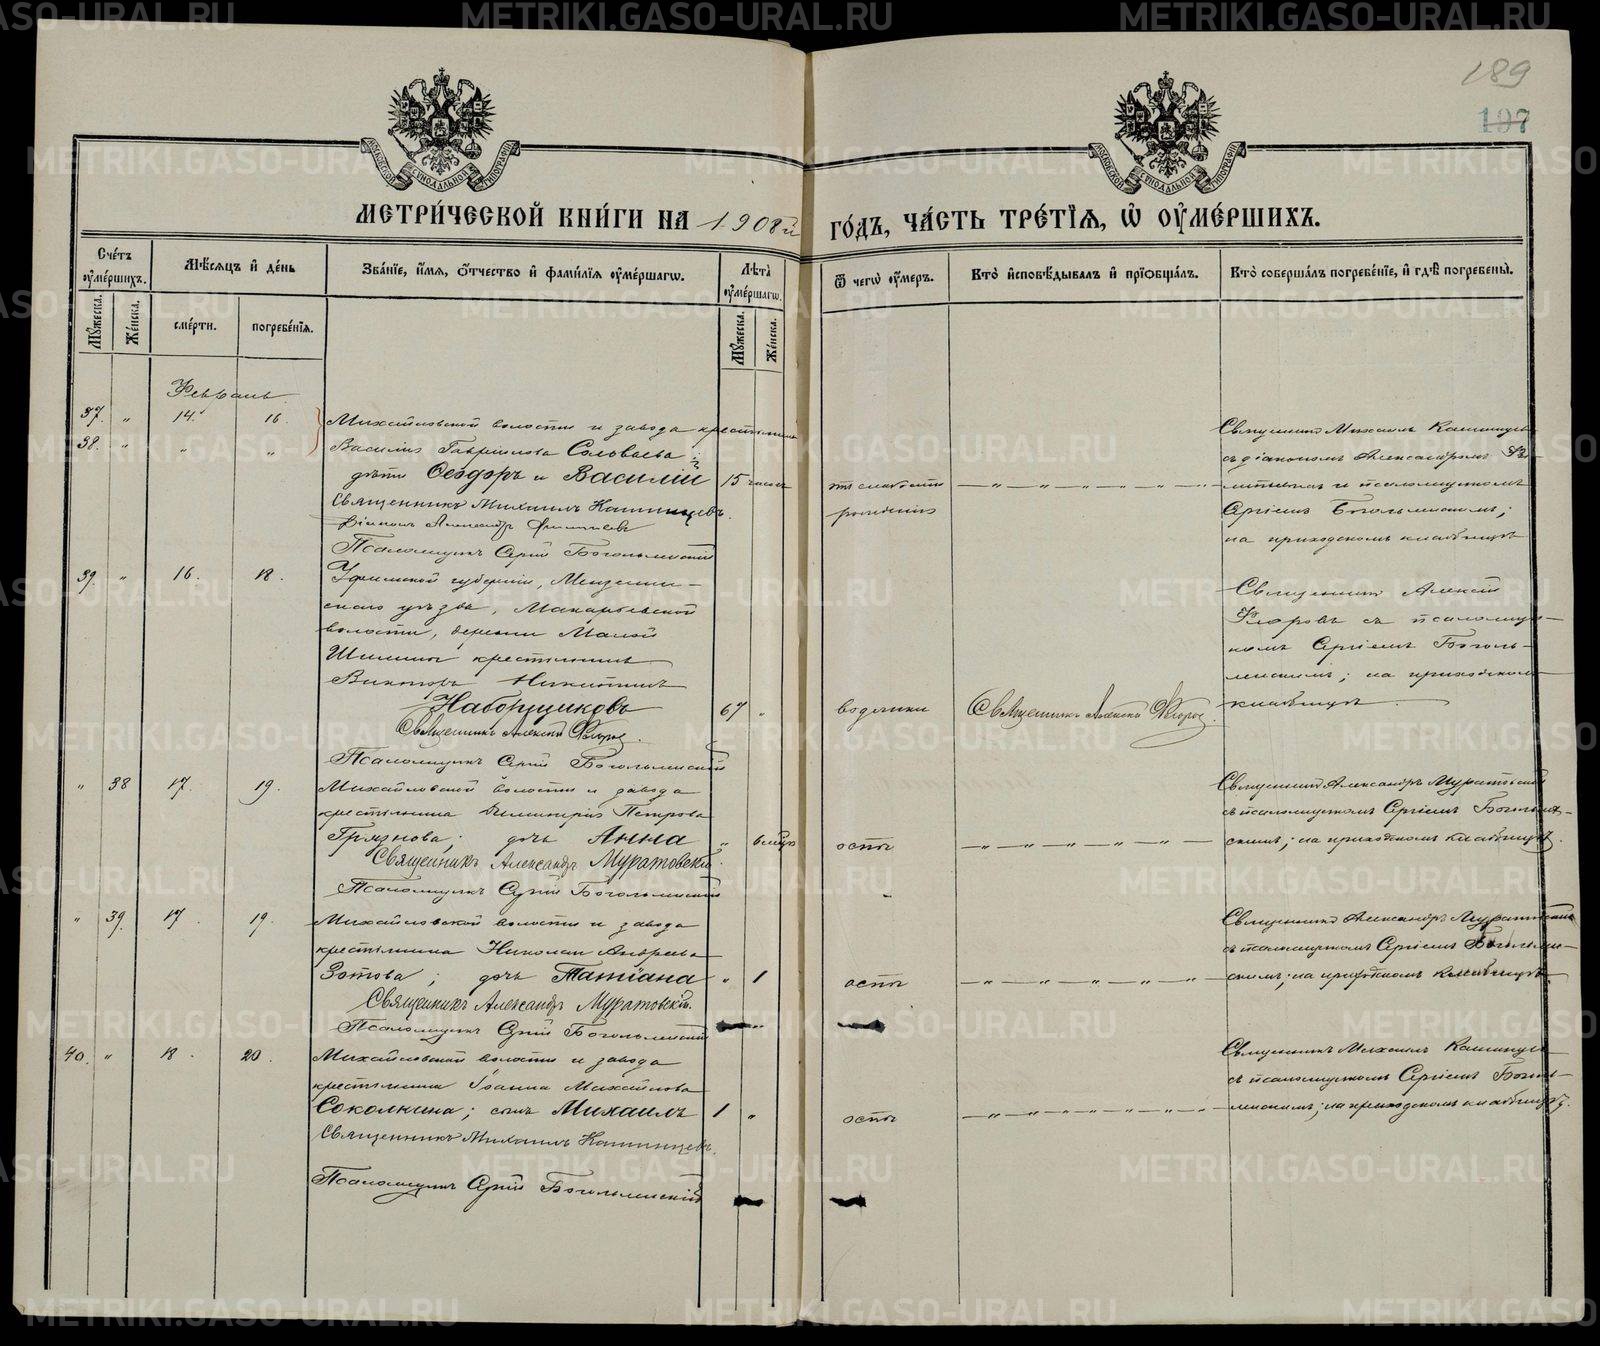 189
197
МОСКОВСКОЙ СѴНОДАЛЬНОЙ ТИПОГРАФІИ
МОСКОВСКОЙ СѴНОДАЛЬНОЙ ТИПОГРАФІИ
МЕТРИ́ЧЕСКОЙ КНИ́ГИ НА 1908й ГО́ДЪ, ЧА́СТЬ ТРЕ́ТІЯ, Ѡ ОУМЕ́РШИХЪ.
Счетъ оумершихъ.
Мужеска.
Женска.
Мѣсяцъ и день
смерти.
погребенія.
Званіе, имя, отчество и фамилія оумершагѡ.
Лѣта оумершагѡ.
Мужеска.
Женска.
Ѿ чегѡ оумеръ.
Кто исповѣдывалъ и пріобщалъ.
Кто совершалъ погребеніе, и гдѣ погребены.
Февраль
37. " 14. 16. Михайловской волости и завода крестьянина
38. " " " Василія Гаврилова Соловьева;
дѣти Ѳеодоръ и Василій 15 часовъ отъ слабости рожденія — " — " — " —
Священникъ Михаилъ Кашинцевъ
съ діакономъ Александромъ
и псаломщикомъ
Сергіемъ Богольпскимъ;
на приходскомъ кладбищѣ
Священникъ Михаилъ Кашинцевъ.
Діаконъ Александръ
Псаломщикъ Сергій
39. " 16. 18. Уфимской губерніи, Мензелин-
скаго уѣзда, Макарьевской
волости, деревни Малой
Шильны крестьянинъ
Викторъ Никитинъ
Наборщиковъ 67 " водянки Священникъ Алексій Флоровъ.
Священникъ Алексій
Флоровъ съ псаломщи-
комъ Сергіемъ
на приходскомъ
кладбищѣ
Священникъ Алексій Флоровъ.
Псаломщикъ Сергій
" 38 17. 19. Михайловской волости и завода
крестьянина Димитрія Петрова
Грязнова; дочь Анна " 6 мѣсяц. оспы — " — " — " —
Священникъ Александръ Муратовскій
съ псаломщикомъ Сергіемъ
на приходскомъ кладбищѣ.
Священникъ Александръ Муратовскій.
Псаломщикъ Сергій
" 39. 17. 19. Михайловской волости и завода
крестьянина Николая Андреева
Зотова; дочь Татіана " 1 оспы — " — " — " —
Священникъ Александръ Муратовскій
съ псаломщикомъ Сергіемъ
на приходскомъ кладбищѣ.
Священникъ Александръ Муратовскій.
Псаломщикъ Сергій
40. " 18. 20. Михайловской волости и завода
крестьянина Іоанна Михайлова
Соколкина; сынъ Михаилъ 1 " оспы — " — " — " —
Священникъ Михаилъ Кашинцевъ
съ псаломщикомъ Сергіемъ
на приходскомъ кладбищѣ.
Священникъ Михаилъ Кашинцевъ.
Псаломщикъ Сергій
METRIKI.GASO-URAL.RU